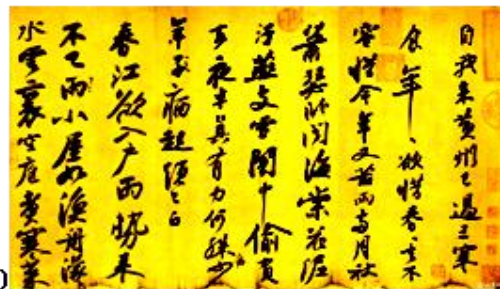 自我來黃州已過三寒
食年〻欲惜春〻去不
容惜今年又苦雨兩月秋
蕭瑟臥聞海棠花泥
汙燕支雪闇中偷負
去夜半真有力何殊少
年子病起須已白
春江欲入戶雨勢來
不已雨小屋如漁舟濛〻
水雲裏空庖煮寒菜